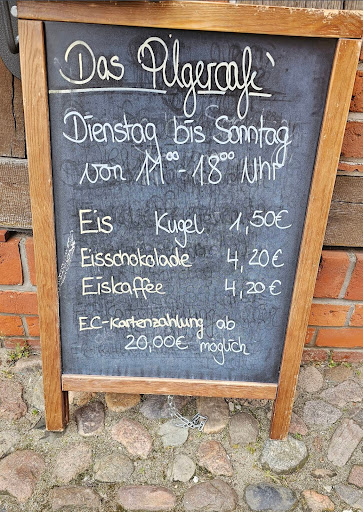 Das Pilgercafé
Dienstag bis Sonntag
von 11⁰⁰ - 18⁰⁰ Uhr
Eis Kugel 1,50€
Eisschokolade 4,20€
Eiskaffee 4,20€
EC-Kartenzahlung ab
20,00€ möglich